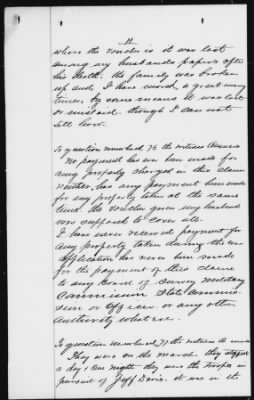 11
where the voucher is it was lost
among my husbands papers after
his death. the family was broken
up and I have moved a great many
times. by some means it was lost
or mislaid though I can not
tell how.
To question numbered 76 the witness answers
No payment has ever been made for
any property charged in this claim
neither has any payment been made
for any property taken at the same
time. the voucher given my husband
was supposed to cover all.
I have never received payment for
any property taken during the war
application has never been made
for the payment of this claim
to any board of survey military
commission State commis
sion or officer or any other
authority what ever.
To question numbered 77 the witness answers
They was on the march. they stopped
a day & one night they was the troops in
pursuit of Jeff Davis. it was in the